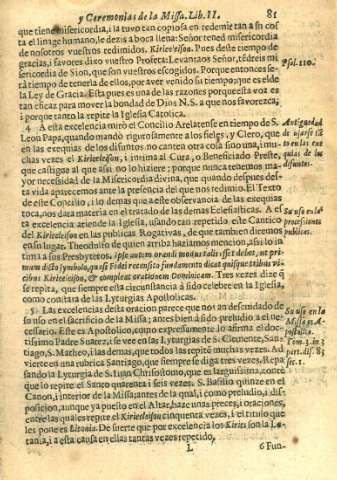 y Ceremonias de la Missa. Lib. II. 81
que tiene misericordia, i la tuvo tan copiosa en redemir tan a su cos
ta el linage humano, le dezis a boca llena: Señor tened misericordia
de nosotros vuestros redimidos. Kirieeleison. Pues deste tiempo de
gracias, i favores dixo vuestro Profeta: Levantaos Señor, tédreis mi
sericordia de Sion, que son vuestros escogidos. Porque entonces se-
rà tiempo de tenerla de ellos, por aver venido su tiempo: que es el de
la Ley de Gracia. Esta pues es una de las razones porque esta voz es
tan eficaz para mover la bondad de Dios N. S. a que nos favorezca,
i porque tanto la repite la Iglesia Catolica.
Psal. 110.
4 A esta excelencia miro el Concilio Arelatense en tiempo de S.
Leon Papa, quando mandò rigurosamente a los fieles, y Clero, que
en las exequias de los difuntos no canten otra cosa sino una, i mu-
chas vezes el Kirieeleison, i intima al Cura, o Beneficiado Preste,
que castigue al que assi no lo hiziere; porque nunca tenemos ma-
yor necessidad de la Misericordia divina, que quando despues des-
ta vida aparecemos ante la presencia del que nos redimio. El Texto
de este Concilio, i lo demas que a esta observancia de las exequias
toca, nos darà materia en el tratado de las demas Eclesiasticas. A es
ta excelencia atiende la Iglesia, usando tan repetido este Cantico
del Kirieeleison en las publicas Rogativas, de que tambien diremos
en su lugar. Theodulfo de quien arriba haziamos mencion, asi lo in
tima a sus Presbyteros. ipse autem orandi modus talis esse debet, ut pri-
mum dicto symbolo, quasi Fidei recensito fundamento dicat quisque tribus vi
cibus Kirieeleison, & compleat orationem Dominicam. Tres vezes dize q̃
se repita, que siempre esta circunstancia à sido celebre en la Iglesia,
como constara de las Lyturgias Apostolicas.
Antiguedad
de usarse
to en las exe
quias de los
difuntos.
Su uso en las
procesiones
publicas.
5 Las excelencias desta oracion parece que nos an desnudado de
su uso en el sacrificio de la Missa; antes bien à sido preludio a el ne-
cessario. Este es Apostolico, como expressamente lo afirma el doc-
tissimo Padre Suarez, i se vee en las Lyturgias de S. Clemente, San-
tiago, S. Matheo, i las demas, que todos las repite muchas vezes. Ad
vierte en una rubrica Santiago, que siempre se diga tres vezes. Repa
sando la Lyturgia de S. Iuan Chrisostomo, que es larguissima, conté
que lo repite el Sanco quarenta i seis vezes. S. Basilio quinze en el
Canon, i interior de la Missa; antes de la qual, i como preludio, i dis-
posicion, aunque ya puesto en el Altar, haze unas preces, i oraciones,
entre las quales repite el Kirieeleison cinquenta vezes, i el titulo que
les pone es Litania. De suerte que por excelencia los Kiries son la Le-
tania, i a esta causa en ellas tantas vezes repetido,
Su uso en la
Missa es A-
postolico.
Tom. 3. in 3
par. dis. 83
sec. 1.
L
6 Fun-